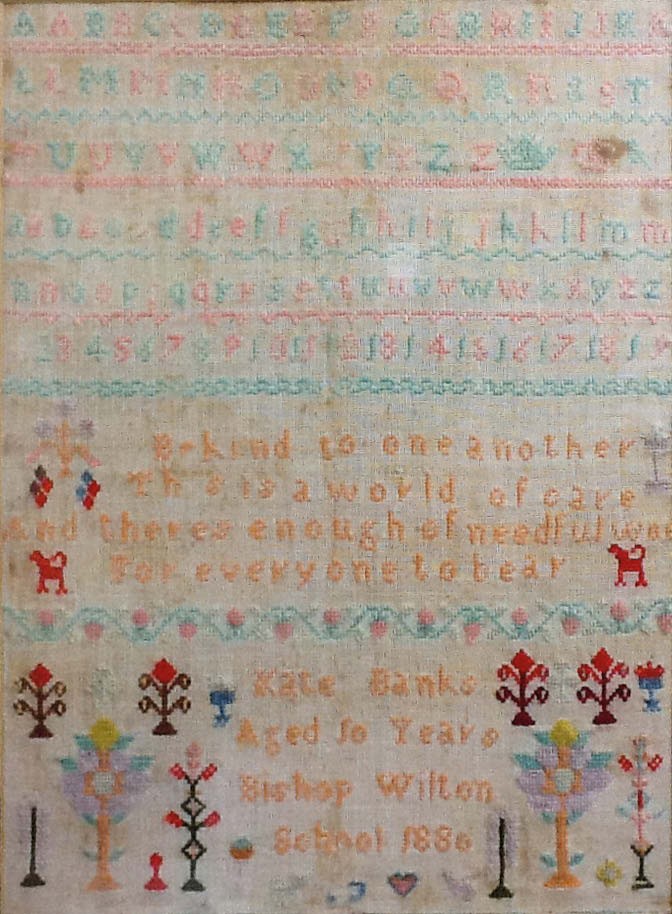 A A B B C C D D E E F F G G H H I I J J K K
L L M M N N O O P P Q Q R R S S T
T U U V V W W X Y Y Z Z
a a b b c c d d e e f f g g h h i i j j k k l l m m
n n o o p p q q r r s s t t u u v v w w x x y y z z
2 3 4 5 6 7 8 9 10 11 12 13 14 15 16 17 18 19
Be kind to one another
This is a world of care
And theres enough of needful woe
For everyone to bear
Kate Banks
Aged 10 Years
Bishop Wilton
School 1886